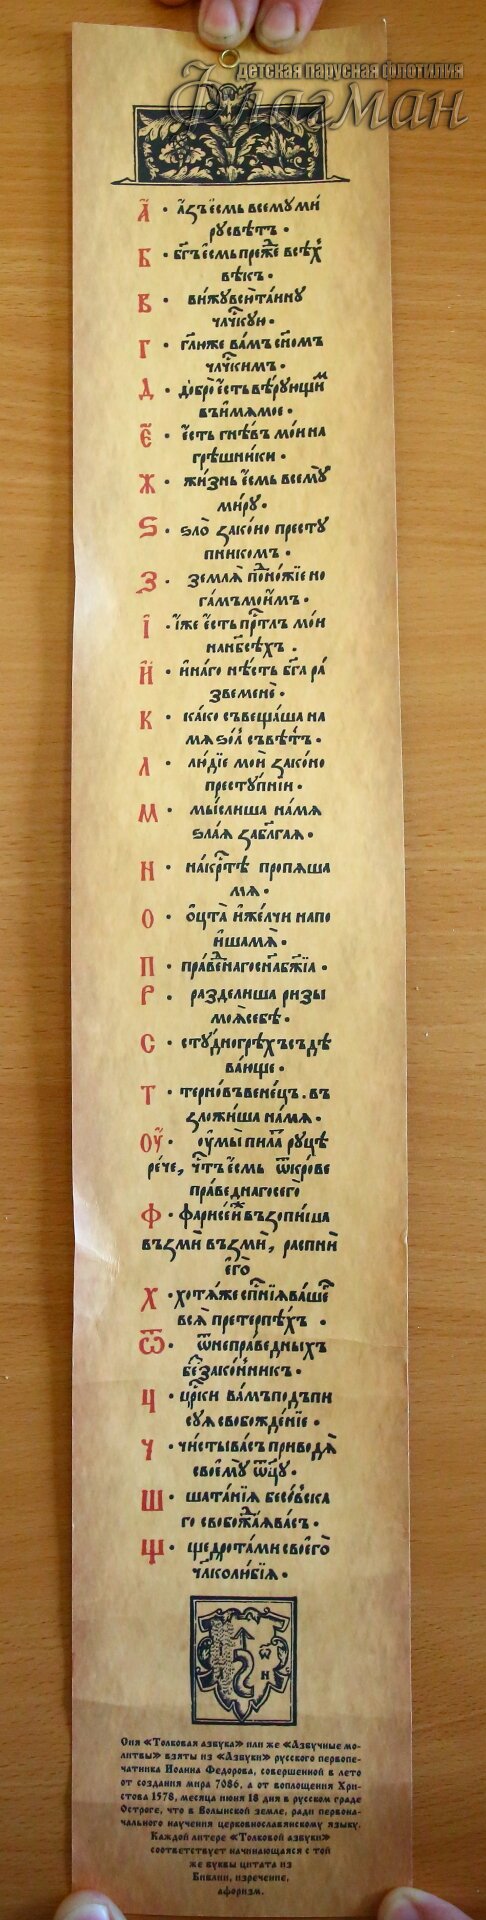 детская парусная флотилия
Флагман
А҃ • а҆́зъ є҆́смь всемꙋ ми́
рꙋ свѣ́тъ •
Б • бг҃ъ є҆́смь пре́жⷣе всѣ́хъ
вѣ́къ •
В • ви́жꙋ всю̀ та́йнꙋ
чл҃чкꙋю •
Г • гл҃ю же ва́мъ сн҃омъ
чл҃чкимъ •
Д • добро̀ є҆́сть вѣ́рꙋющимъ
въ и҆́мѧ мое •
Є • є҆́сть гнѣ́въ мо́й на
грѣ́шники •
Ж • жи́знь є҆́смь всемꙋ̀
ми́рꙋ •
Ѕ • ѕло̀ зако́но престꙋ
пникомъ •
З • землѧ̀ подно́жїе но
га́мъ мои́мъ •
І • і҆́же є҆́сть прⷭ҇тлъ мо́й
на нб҃сѣ́хъ •
И • и҆на́го нѣ́сть бг҃а ра́
зве менѐ •
К • ка́ко съвеща́ша на
мѧ ѕо́лъ съвѣ́тъ •
Л • лю́дїе моѝ зако́но
престꙋ́пнїи •
М • мы́слиша на́мѧ
ѕла́ѧ за бл҃га́ѧ •
Н • на крⷭ҇тѣ̀ пропѧша
мѧ •
О • о҆́цта̀ и҆ же́лчи напо
и́ша мѧ̀ •
П • пра́веⷣнаго сн҃а бж҃їа •
Р • разделиша ризы
моѧ̀ себѣ •
С • стꙋ́дно грѣ́хъ съдѣ
ва́юще •
Т • терно́въ вене́цъ . въ
зложи́ша на́мѧ •
Оу • оу҆мы̀ пила́тъ рꙋцѣ̀
ре́че, чⷭ҇тъ є҆́смь ѿ кро́ве
пра́веднаго сего̀
Ф • фарисе́и възопи́ша
възмѝ възмѝ, распнѝ
є҆го̀
Х • хотѧ́ же сп҃сенїѧ ва́шего
всѧ̀ претерпѣ́хъ •
Ѿ • ѿ непра́ведныхъ
беззако́нникъ •
Ц • цр҃кви ва́мъ подъпи
сꙋѧ свобожде́нїе •
Ч • чи́сты ва́съ приводѧ̀
своемꙋ̀ ѿц҃ꙋ •
Ш • шата́нїѧ бесо́вска
го свобожⷣа́ѧ ва́съ •
Щ • щедрота́ми своего̀
чл҃колю́бїѧ •
Сия «Толковая азбука» или же «Азбучные мо-
литвы» взяты из «Азбуки» русского первопе-
чатника Иоанна Федорова, совершенной в лето
от создания мира 7086, а от воплощения Хри-
стова 1578, месяца июня 18 дня в русском граде
Остроге, что в Волынской земле, ради первона-
чального научения церковнославянскому языку.
Каждой литере «Толковой азбуки»
соответствует начинающаяся с той
же буквы цитата из
Библии, изречение,
афоризм.